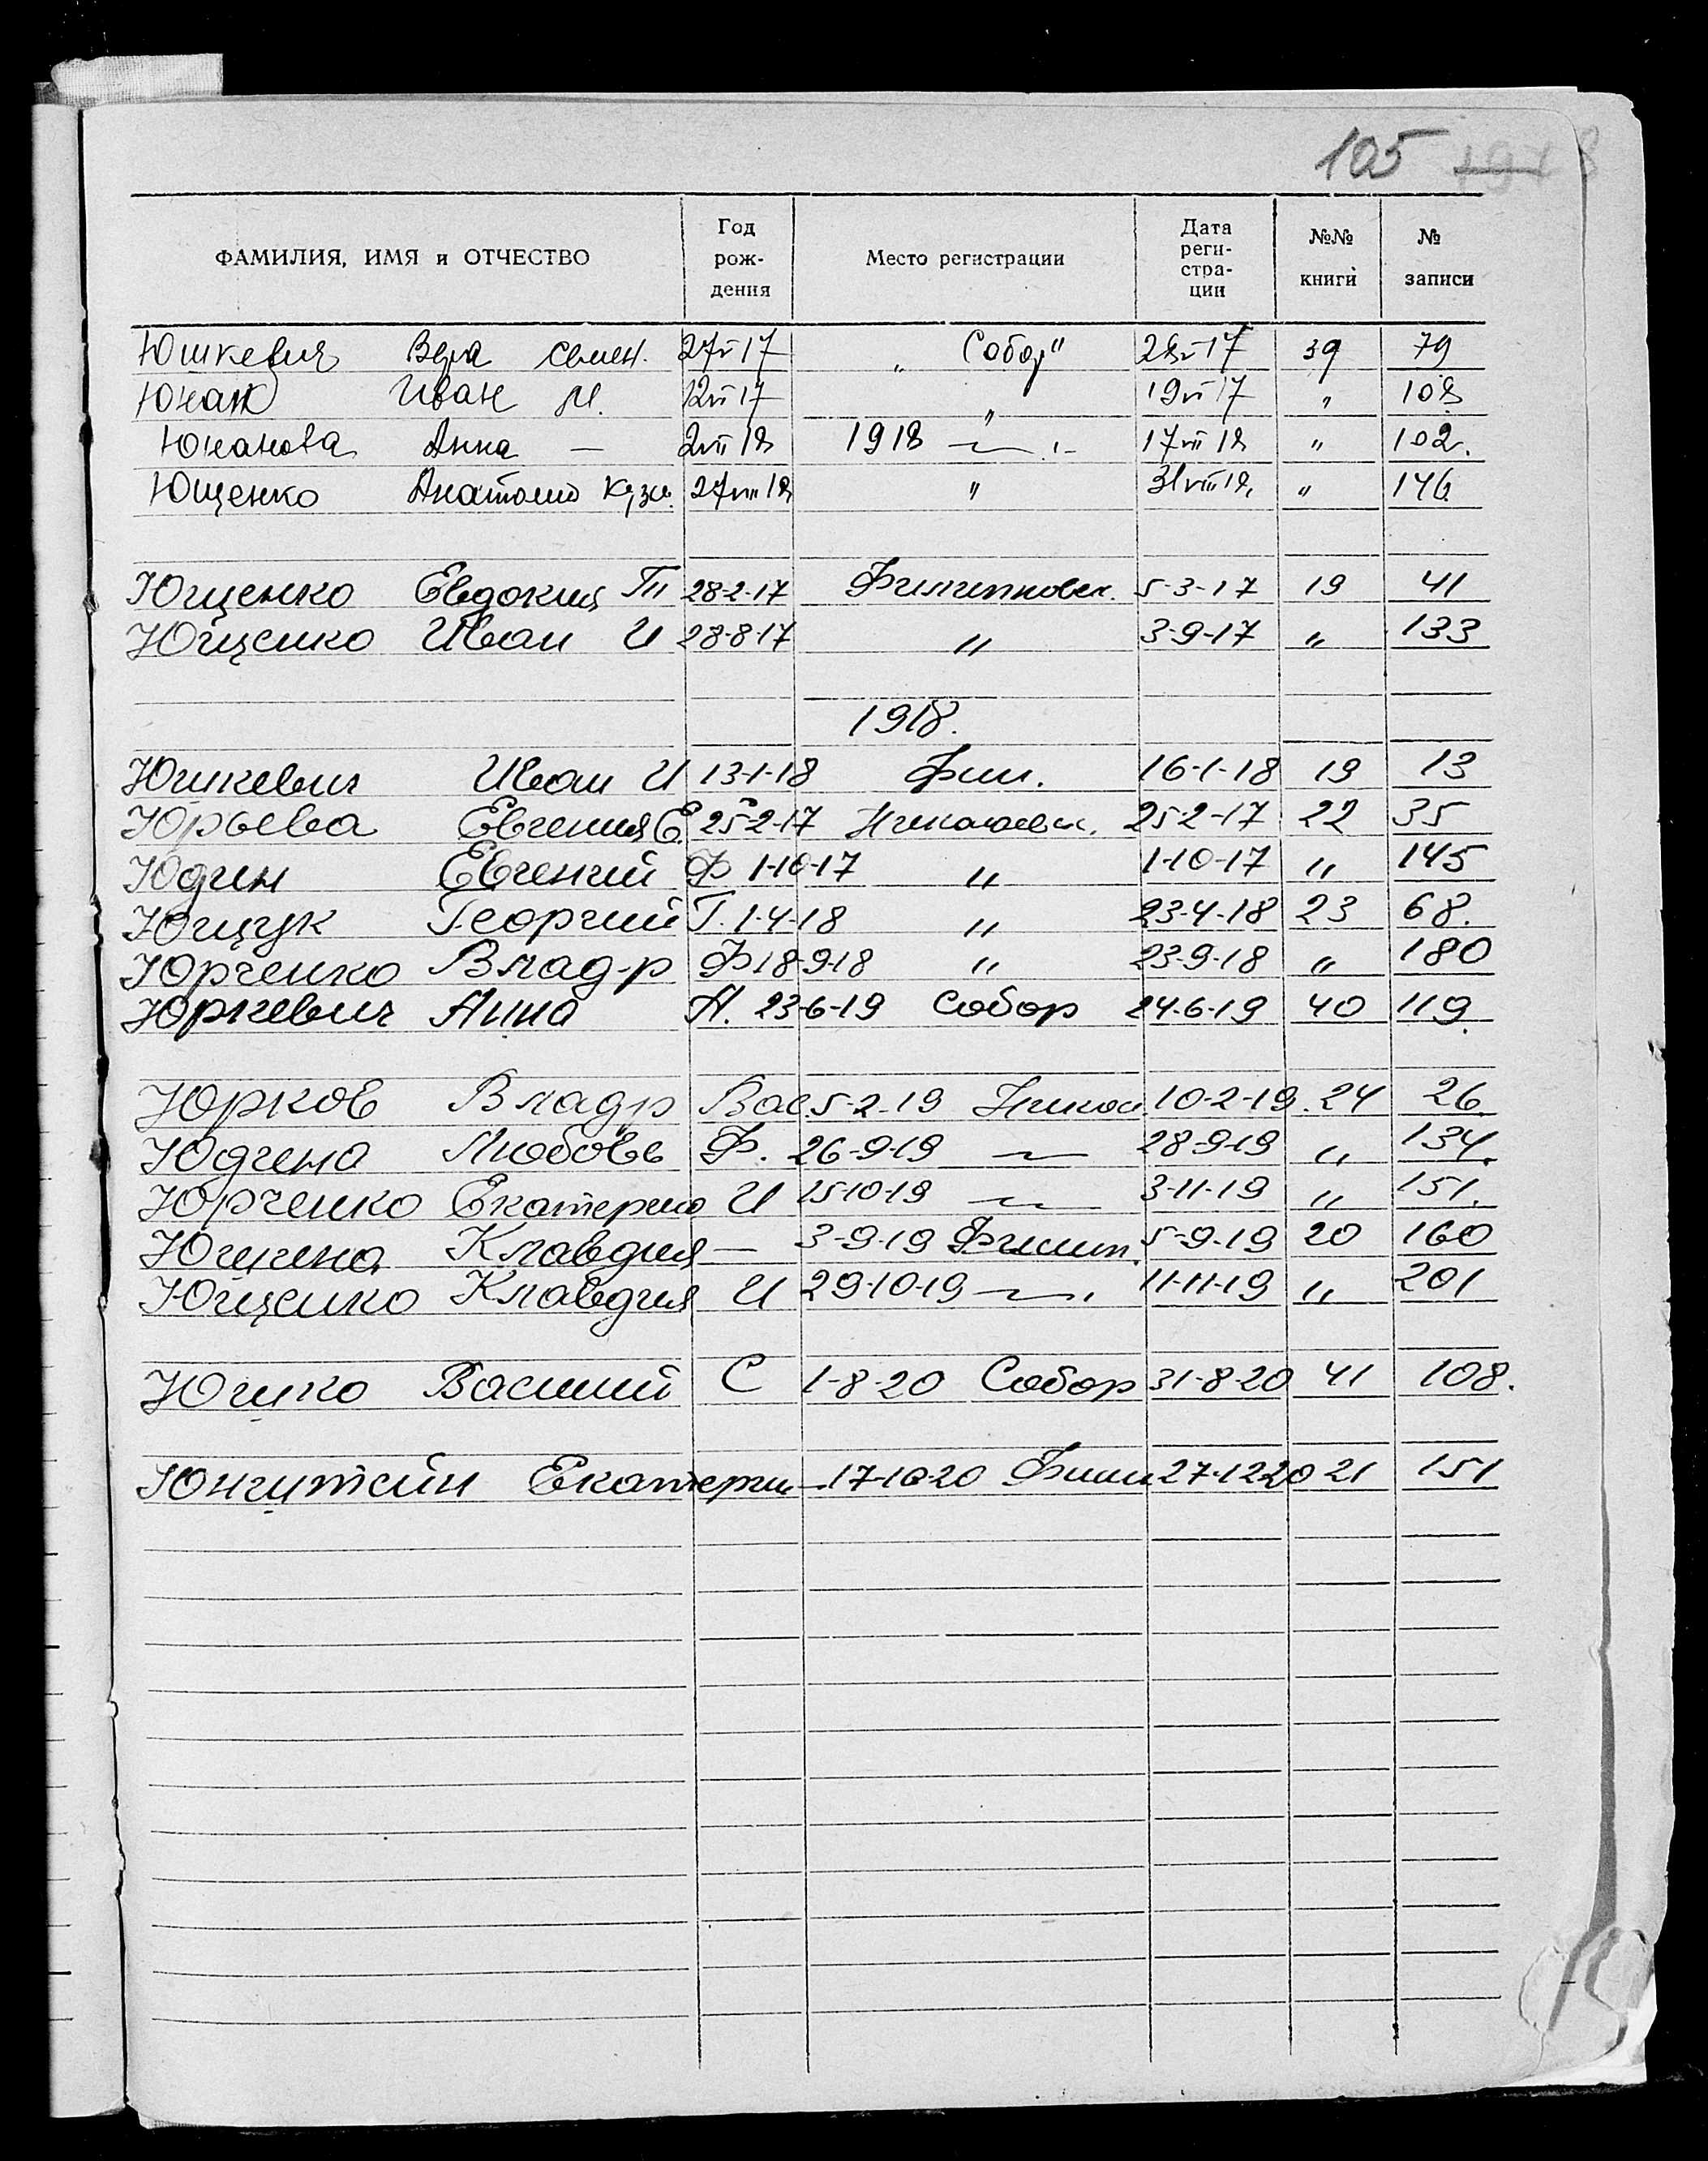 105
ФАМИЛИЯ, ИМЯ и ОТЧЕСТВО Год рож- дения Место регистрации Дата реги- стра- ции №№ книги № записи
Юшкевич Вера Семен. 27 V 17 „ Собор" 28 V 17 39 79
Юхак Иван М. 12 VI 17 „ 19 VI 17 „ 108
Юханова Анна — 2 VII 18 1918 17 VII 18 „ 102.
Ющенко Анатолий Кузм. 27 VIII 18 „ 31 VIII 18. „ 146
Ющенко Евдокия 28-2-17 Филипповск. 5-3-17 19 41
Ющенко Иван И 28-8-17 „ 3-9-17 „ 133
1918.
Юшкевич Иван И 13-1-18 Фил. 16-1-18 19 13
Юрьева Евгения Е. 25-2-17 Николаевск. 25-2-17 22 35
Юдин Евгений Ф 1-10-17 „ 1-10-17 „ 145
Ющук Георгий Г. 1-4-18 „ 23-4-18 23 68.
Юрченко Влад-р Ф 18-9-18 „ 23-9-18 „ 180
Юркевич Анна А. 23-6-19 Собор 24-6-19 40 119.
Юрков Влад-р Вас. 5-2-19 Никол. 10-2-19. 24 26.
Юдина Любовь Ф. 26-9-19 28-9-19 „ 134.
Юрченко Екатерина И 15-10-19 3-11-19 „ 151.
Юшина Клавдия — 3-9-19 Филип. 5-9-19 20 160
Ющенко Клавдия И 29-10-19 11-11-19 „ 201
Юшко Василий С 1-8-20 Собор 31-8-20 41 108.
Юнгштейн Екатерин — 17-10-20 Филип 27-12-20 21 151